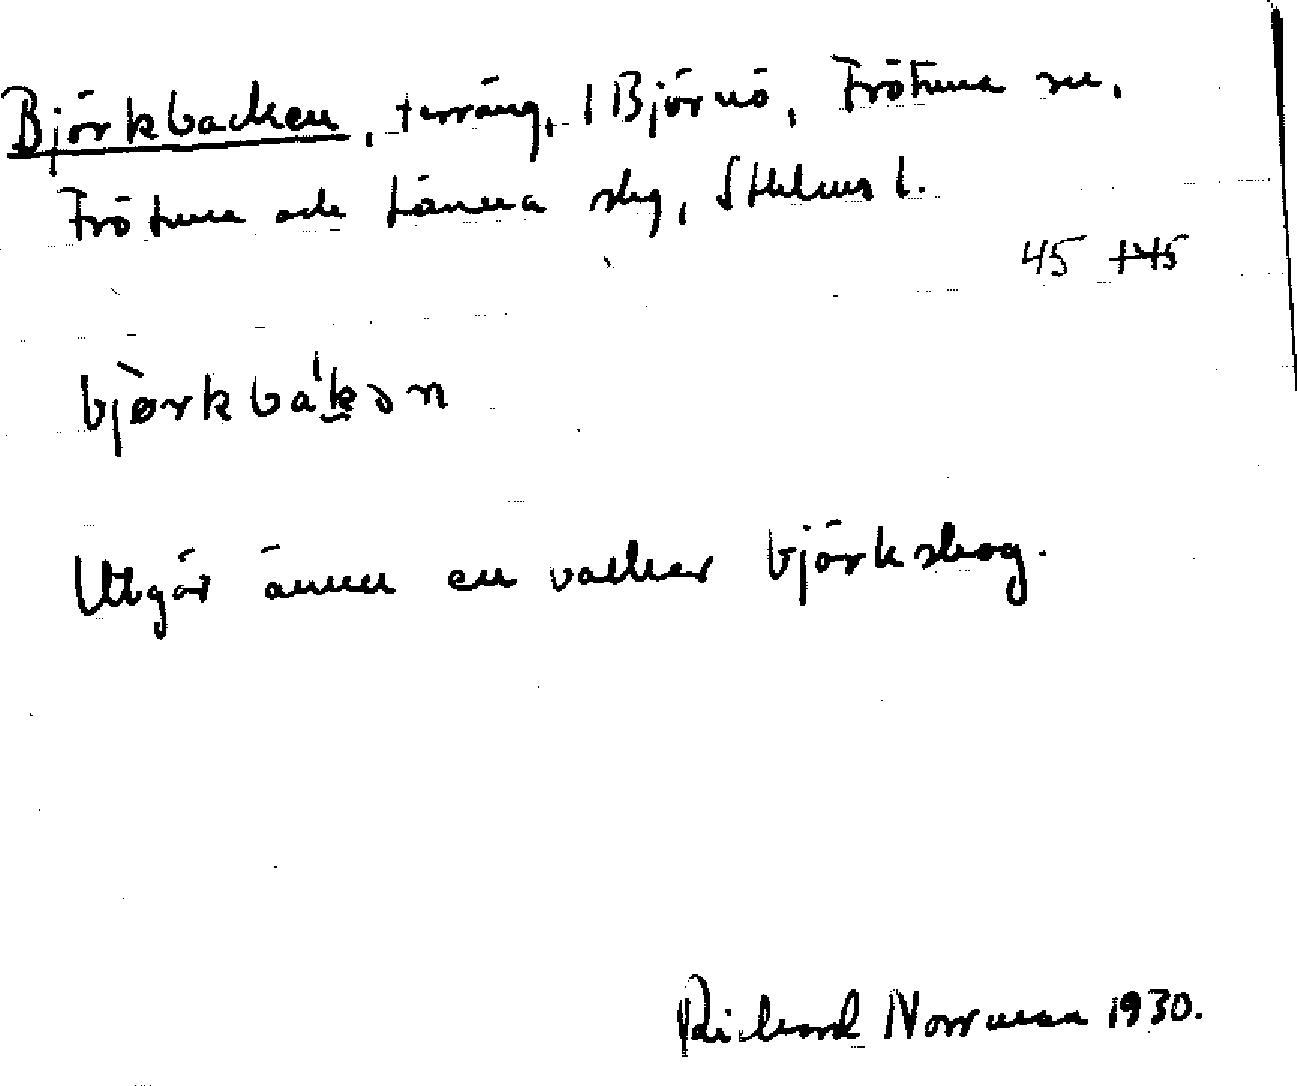 Björkbacken, terräng, i Björnö, Frötuna sn,
Frötuna och Länna skg, Sthlms l.
45
bjørkbakən
Utgör ännu en vacker björkskog.
Richard Norrman 1930.